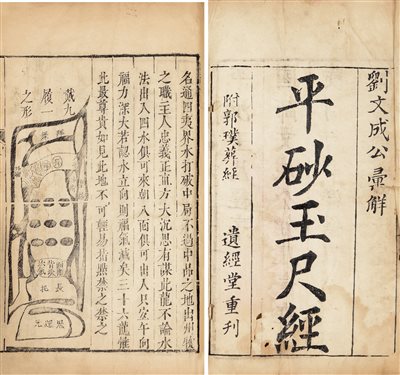 劉文成公彚解
平砂玉尺經
附郭璞葬經
遺經堂重刊
戴九
履一
之形
名通四夷界水打破中局不過中品之地出州牧
之職主人忠義正直方大沉思有謀此龍不論水
法出入四水俱可來朝八面俱可出入只宜午向
福力深大若認水立向則福氣減矣三十六龍惟
此最尊貴如見此地不可輕易指點禁之禁之